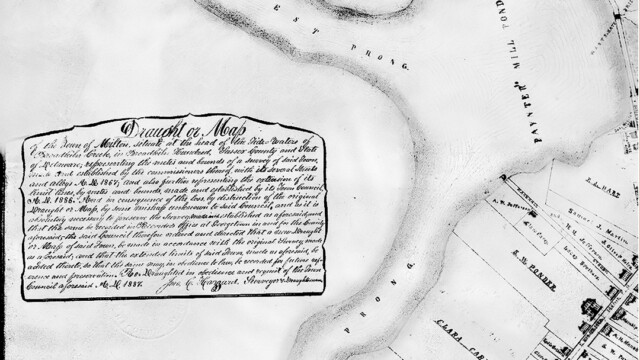 Draught or Map
of the Town of Milton, situate at the head of Tide Waters of
Broadkiln Creek, in Broadkiln Hundred, Sussex County and State
of Delaware; representing the metes and bounds of a survey of said Town,
made and established by the commissioners thereof, with its several Streets
and Alleys A.D. 1867; and also further representing the extension of its
limits thereof by metes and bounds made and established by its Town Council,
A.D. 1886. And in consequence of the loss, by distruction of the original
Draught or Map, by some mishap unknown to said Council, and as it is
absolutely necessary to preserve the Survey established as aforesaid, and
that the same be recorded in Recorders office at Georgetown in and for the County
aforesaid; the said Council therefore ordered and directed that a new Draught
or Map of said Town, be made in accordance with the original Survey, made
as aforesaid, and that the extended limits of said Town, made as aforesaid, be
added thereto, so that the same may, in obedience to law, be recorded for future ref-
erence and preservation. Re-Draughted in obedience and request of the Town
Council aforesaid. A.D. 1887. Jno. C. Hazzard, Surveyor & Draughtsman
EST PRONG.
PAYNTER' MILL POND
PRONG.
E. L. HART
Samuel J. Martin
W. W. Jefferson
E. W. PONDER
CLARA CAR